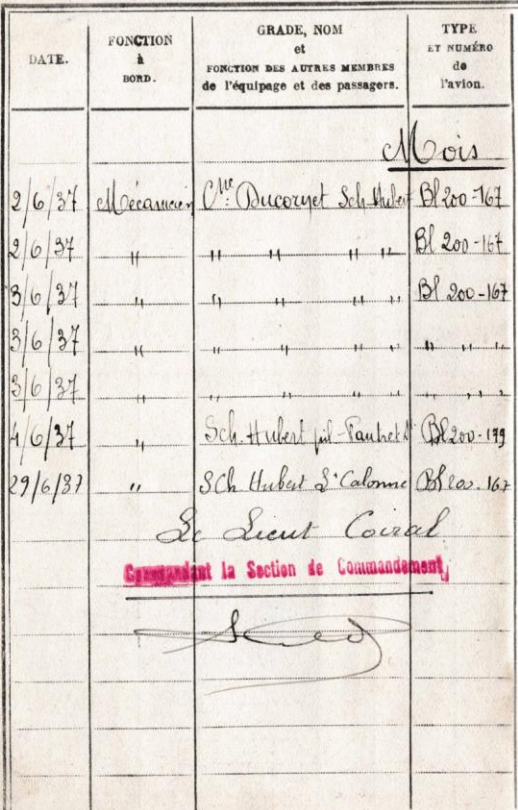 DATE.
FONCTION
à
BORD.
GRADE, NOM
et
FONCTION DES AUTRES MEMBRES
de l'équipage et des passagers.
TYPE
ET NUMÉRO
de
l'avion.
Mois
2/6/37 Mécanicien Cne Ducornet Sch Hubert Bl 200-167
2/6/37 " " " " " Bl 200-167
3/6/37 " " " " " Bl 200-167
3/6/37 " " " " " " " "
3/6/37 " " " " " " " "
4/6/37 " Sch. Hubert Bl 200-179
29/6/37 " SCh Hubert Calonne Bl 200-167
Le Lieut Coiral
Commandant la Section de Commandement,